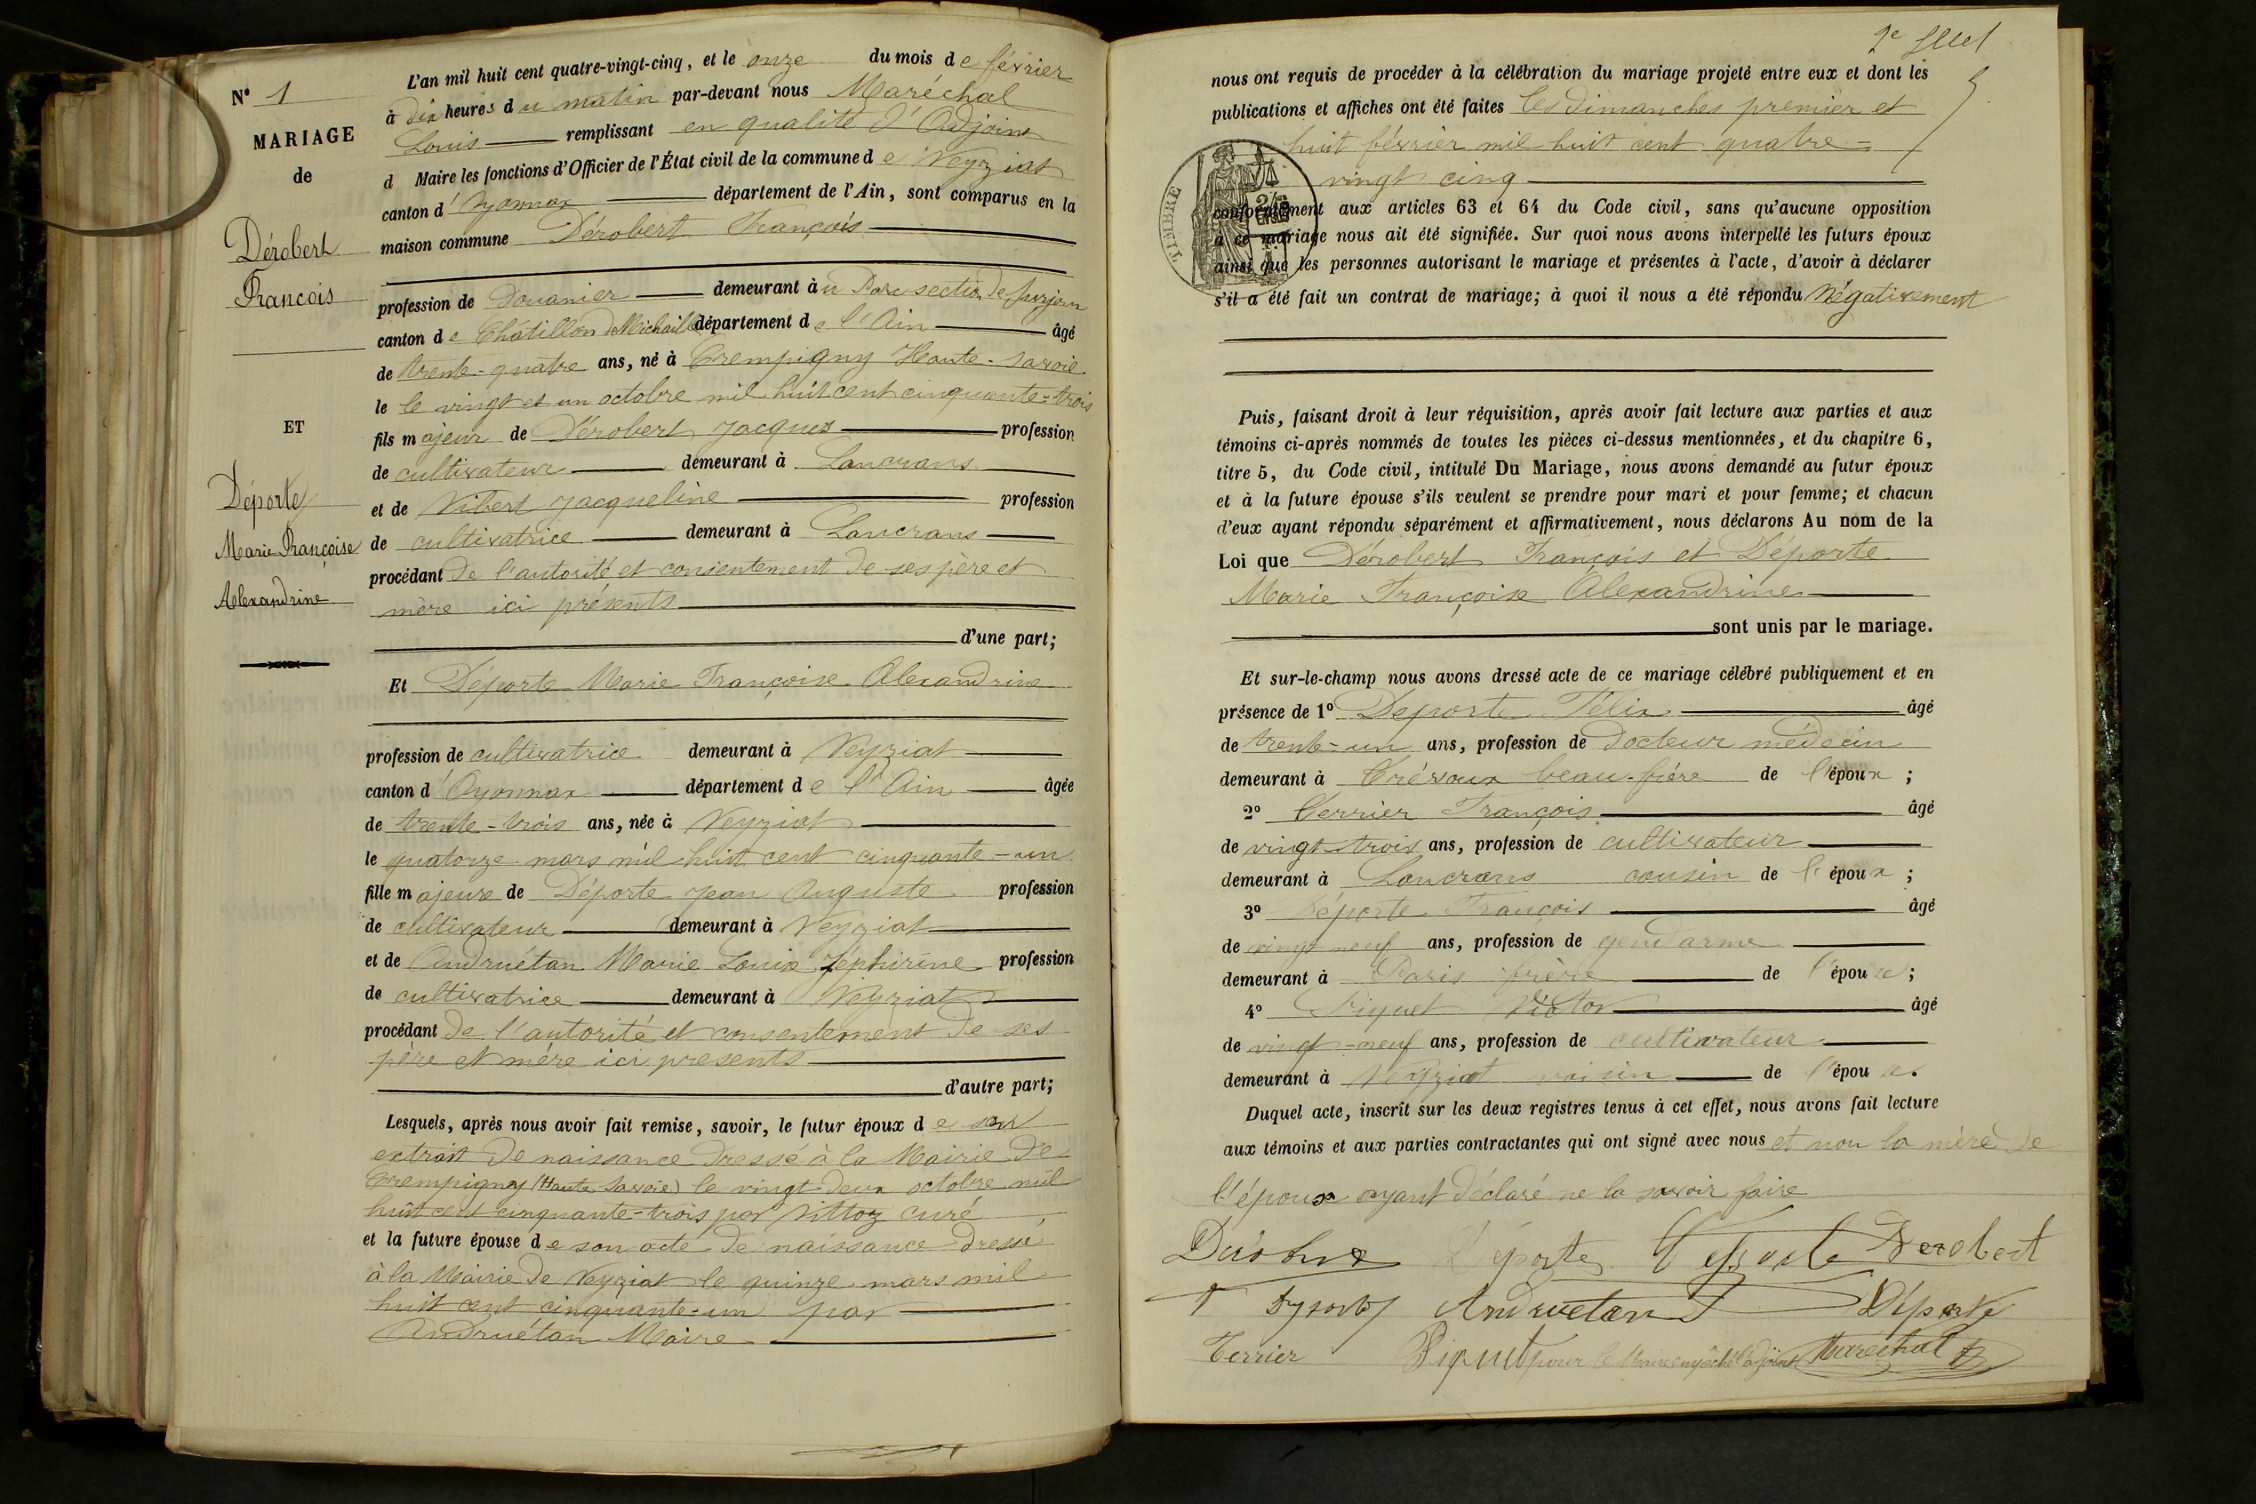 N° 1
MARIAGE
de
Dérobert
François
ET
Déporte
Marie Françoise
Alexandrine
L'an mil huit cent quatre-vingt-cinq, et le onze du mois de février
à dix heures du matin par-devant nous Maréchal
Louis remplissant en qualité d'Adjoint
d Maire les fonctions d'Officier de l'État civil de la commune de Veyziat
canton d'Oyonnax département de l'Ain, sont comparus en la
maison commune Dérobert François
profession de Douanier demeurant au Parc section de surjoux
canton de Châtillon de Michaille département de l'Ain âgé
de trente-quatre ans, né à Crempigny Haute-savoie
le le vingt et un octobre mil huit cent cinquante-trois
fils majeur de Dérobert Jacques profession
de cultivateur demeurant à Lancrans
et de Vibert Jacqueline profession
de cultivatrice demeurant à Lancrans
procédant de l'autorité et consentement de ses père et
mère ici présents
d'une part;
Et Déporte Marie Françoise Alexandrine
profession de cultivatrice demeurant à Veyziat
canton d'Oyonnax département de l'Ain âgée
de trente-trois ans, née à Veyziat
le quatorze mars mil huit cent cinquante-un
fille majeure de Déporte Jean Auguste profession
de cultivateur demeurant à Veyziat
et de Andruétan Marie Louise Zéphirine profession
de cultivatrice demeurant à Veyziat
procédant de l'autorité et consentement de ses
père et mère ici présents
d'autre part;
Lesquels, après nous avoir fait remise, savoir, le futur époux de son
extrait de naissance dressé à la Mairie de
Crempigny (Haute Savoie) le vingt-deux octobre mil
huit cent cinquante-trois par Vittoz curé
et la future épouse de son acte de naissance dressé
à la Mairie de Veyziat le quinze mars mil
huit cent cinquante-un par
Andruétan Maire
2e
nous ont requis de procéder à la célébration du mariage projeté entre eux et dont les
publications et affiches ont été faites les dimanches premier et
huit février mil huit cent quatre=
vingt cinq
TIMBRE
conformément aux articles 63 et 64 du Code civil, sans qu'aucune opposition
à ce mariage nous ait été signifiée. Sur quoi nous avons interpellé les futurs époux
ainsi que les personnes autorisant le mariage et présentes à l'acte, d'avoir à déclarer
s'il a été fait un contrat de mariage; à quoi il nous a été répondu Négativement
Puis, faisant droit à leur réquisition, après avoir fait lecture aux parties et aux
témoins ci-après nommés de toutes les pièces ci-dessus mentionnées, et du chapitre 6,
titre 5, du Code civil, intitulé Du Mariage, nous avons demandé au futur époux
et à la future épouse s'ils veulent se prendre pour mari et pour femme; et chacun
d'eux ayant répondu séparément et affirmativement, nous déclarons Au nom de la
Loi que Dérobert François et Déporte
Marie Françoise Alexandrine
sont unis par le mariage.
Et sur-le-champ nous avons dressé acte de ce mariage célébré publiquement et en
présence de 1° Deporte Félix âgé
de trente-un ans, profession de docteur médecin
demeurant à Trévoux beau-frère de l'époux;
2° Terrier François âgé
de vingt-trois ans, profession de cultivateur
demeurant à Lancrans cousin de l'époux;
3° Déporte François âgé
de vingt neuf ans, profession de gendarme
demeurant à Paris frère de l'épouse;
4° Piquet Victor âgé
de vingt-neuf ans, profession de cultivateur
demeurant à Veyziat voisin de l'épouse.
Duquel acte, inscrit sur les deux registres tenus à cet effet, nous avons fait lecture
aux témoins et aux parties contractantes qui ont signé avec nous et non la mère de
l'époux ayant déclaré ne la savoir faire
Déporte Derobert
Andruetan Déporte
Terrier Piquet pour le Maire empêché l'adjoint Maréchal